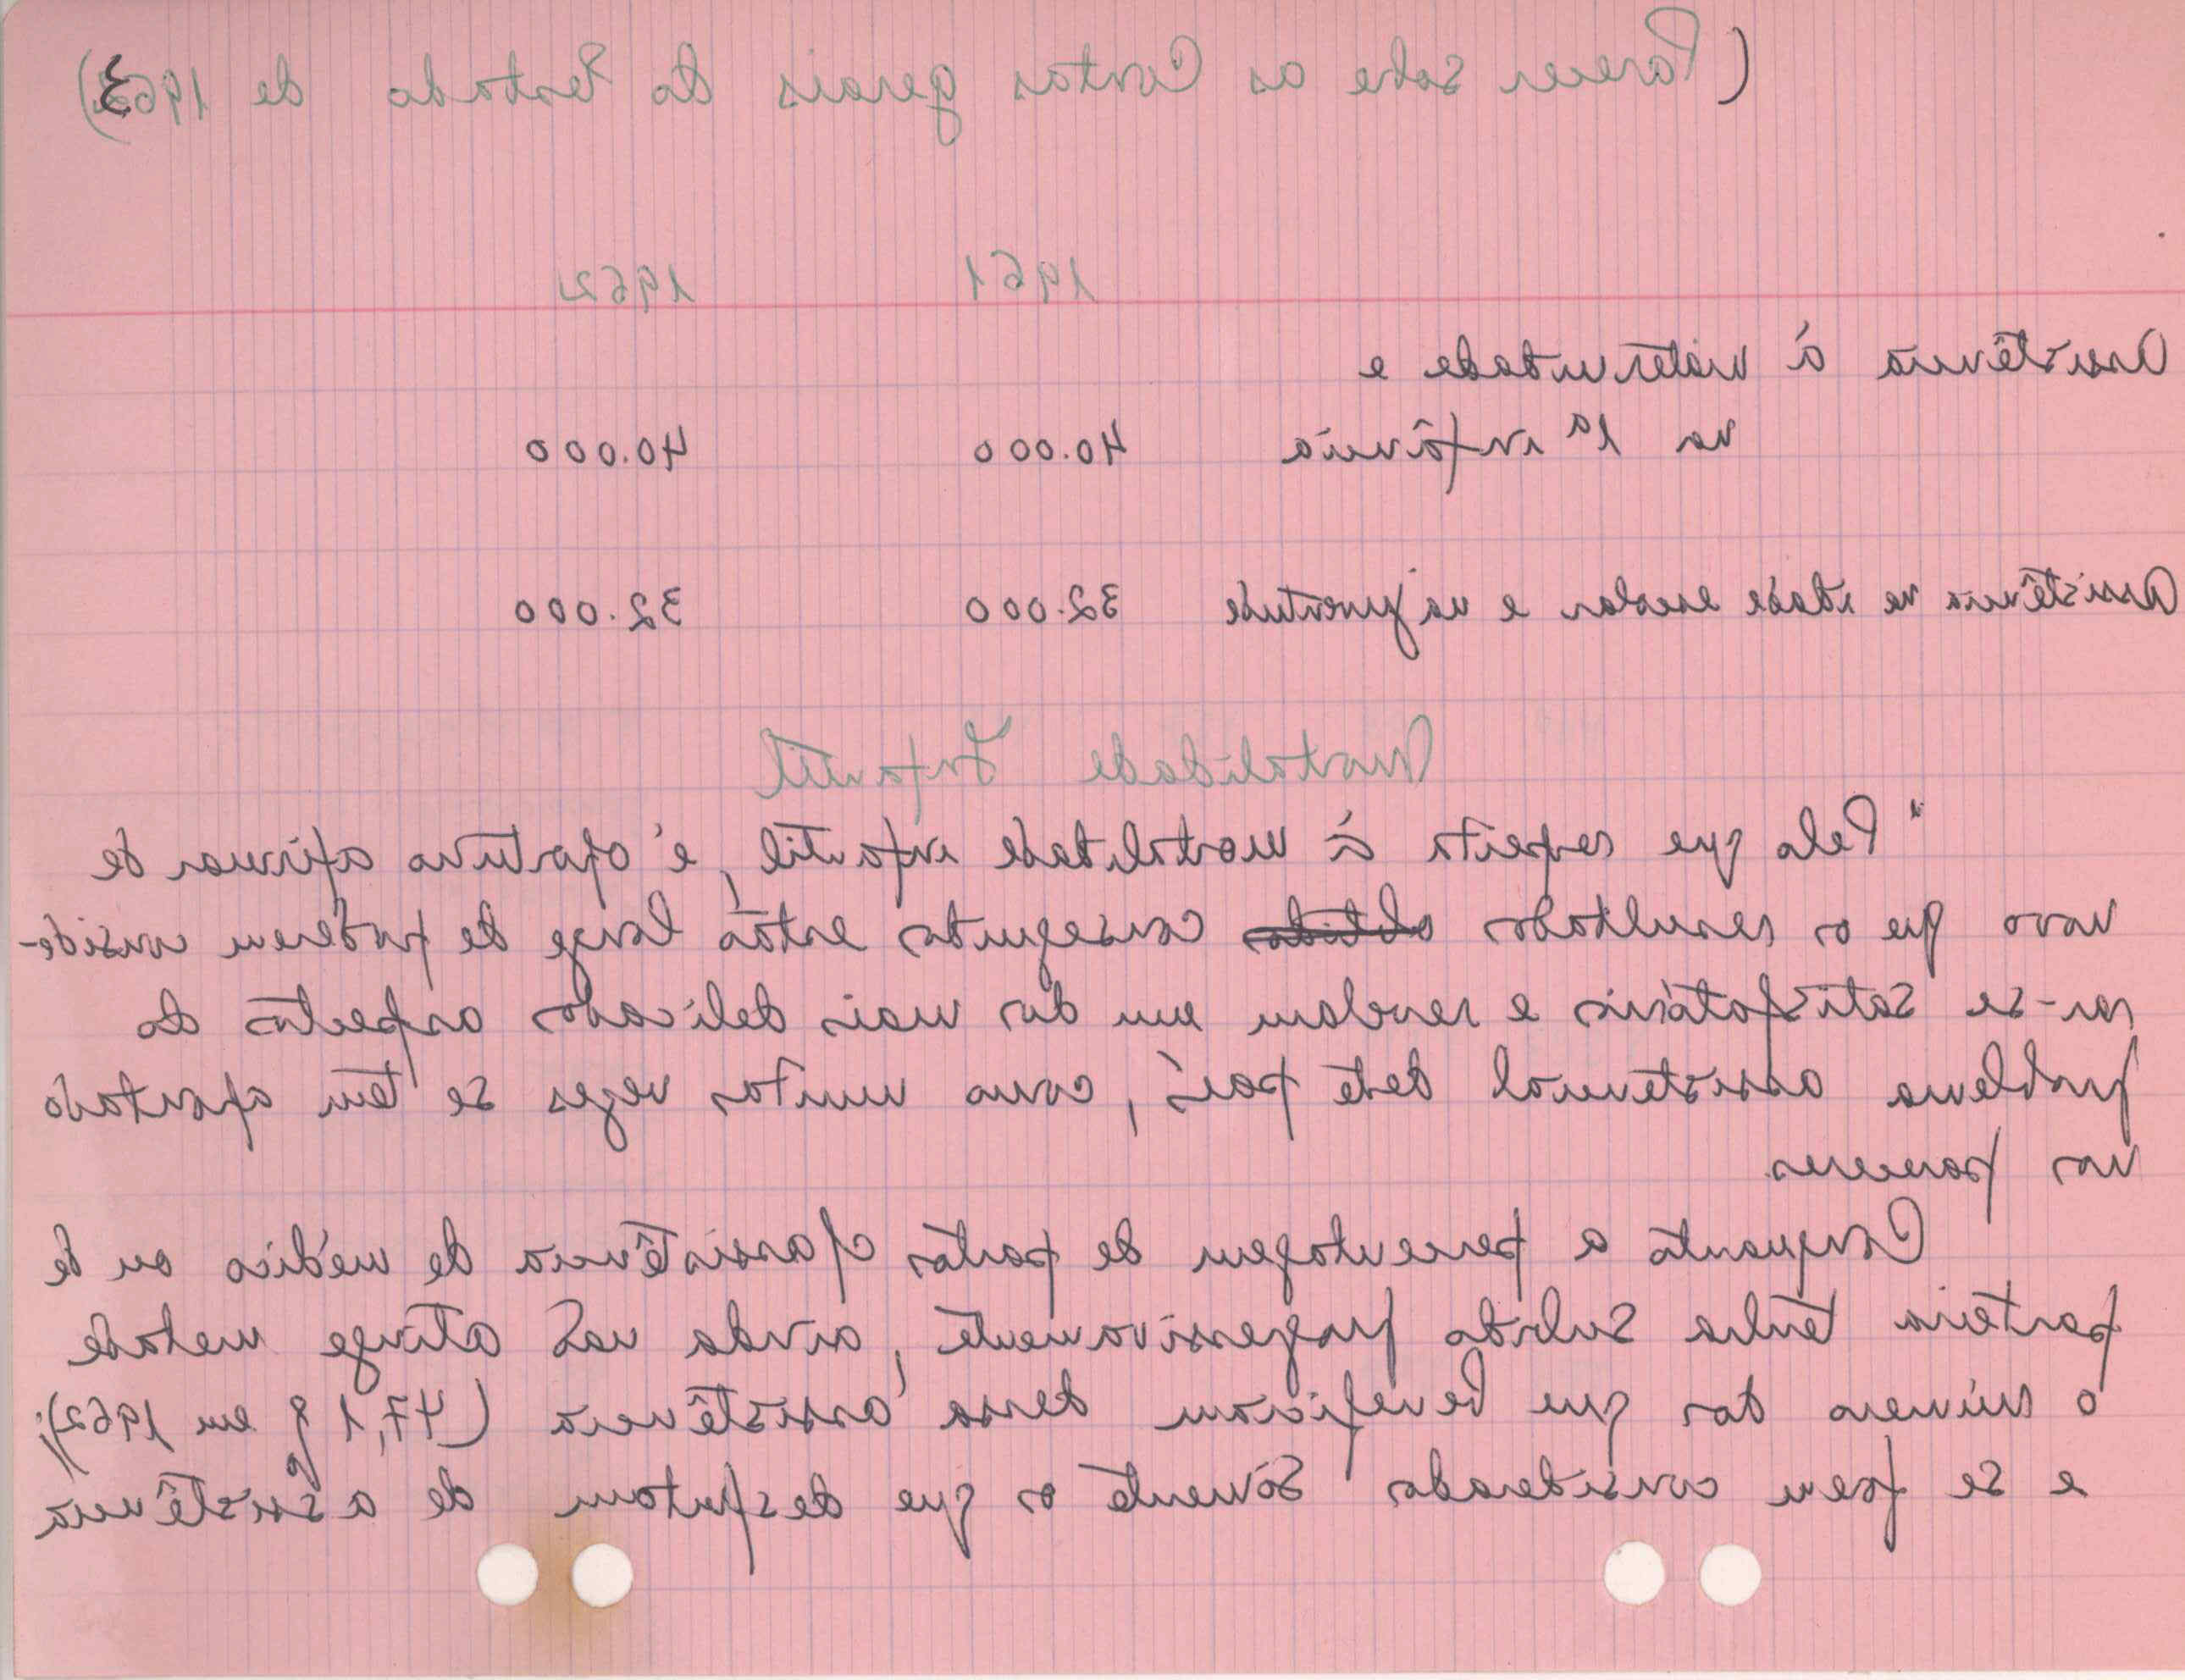 (Parecer sobre as Contas gerais do Estado de 1963)
1961 1962
Assistência á maternidade e
na 1ª infância 40.000 40.000
Assistência na idade escolar e na juventude 32.000 32.000
Mortalidade Infantil
"Pelo que respeita á mortalidade infantil, é oportuno afirmar de
novo que os resultados obtidos conseguidos estão longe de poderem conside-
rar-se satisfatórios e revelam um dos mais delicados aspectos do
problema assistencial deste país, como muitas vezes se tem apontado
nos pareceres.
Conquanto a percentagem de partos c/assistência de médico ou de
parteira tenha subido progressivamente, ainda não atinge metade
o número dos que beneficiam dessa assistência (47,1 % em 1962);
e se forem considerados sómente os que desfrutam de assistência